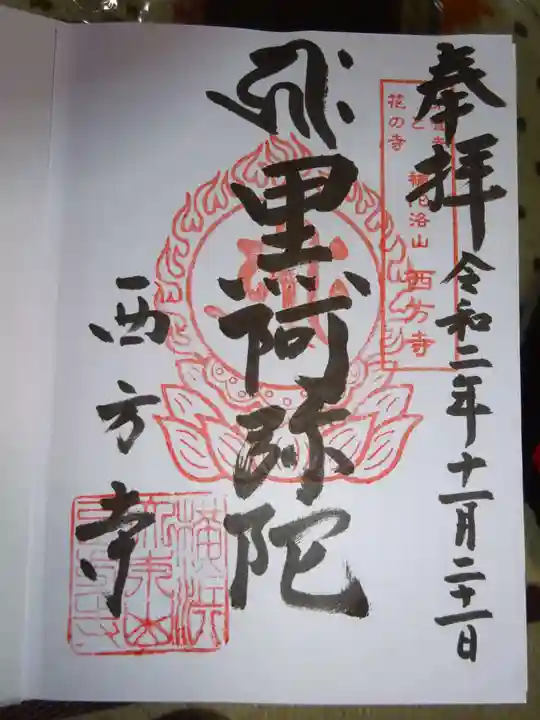 奉拝
令和二年十一月二十一日
と
花の寺
補陀洛山
西方寺
黒阿弥陀
西方寺
横浜